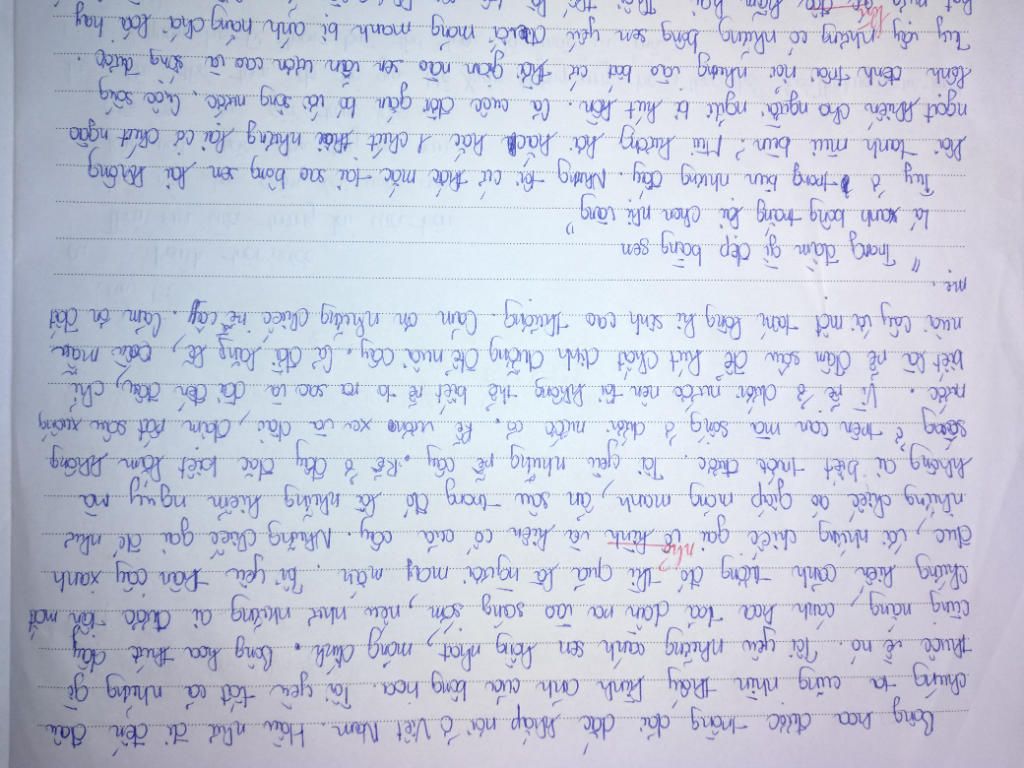 Bông hoa được trồng dải dác khắp nơi ở Việt Nam. Hầu như đi đến đâu
chúng ta cũng nhìn thấy hình ảnh của bông hoa. Tôi yêu tất cả những gì
thuộc về nó. Tôi yêu những cánh sen hồng nhạt, mỏng dính. Bông hoa thức dậy
cùng nắng, cánh hoa toả dần ra vào sáng sớm, nếu như những ai được tận mắt
chứng kiến cảnh tượng đó thì quả là người may mắn. Tôi yêu thân cây xanh
đục, với những chiếc gai và hiên cố của cây. Những chiếc gai để như
nhỏ
những chiếc áo giáp mỏng manh, ẩn sâu trong đó là những hiểm nguy mà
không ai biết trước được. Tôi yêu những rễ cây. Rễ ở đây đặc biệt lắm không
sống ở trên cạn mà sống ở dưới nước cơ. Rễ vươn xa và dài, chìm rất sâu xuống
nước. Vì rễ ở dưới nước nên tôi không thể biết rễ to ra sao và dài đến đâu, chỉ
biết là rễ đâm sâu để hút chất dinh dưỡng để nuôi cây. Lá đã lặng lẽ, màu
nuôi cây với một tấm lòng hi sinh cao thượng. Cảm ơn những chiếc rễ cây. Cảm ơn đất
mẹ.
" Trong đầm gì đẹp bằng sen
Lá xanh bông trắng lại chen nhị vàng"
Tuy ở trong bùn nhưng đấy. Nhưng tôi cứ thắc mắc tại sao bông sen lại không
hôi tanh mùi bùn? Mùi hương hơi hăng hắc 1 chút thôi nhưng lại có chút ngào
ngọt khiến cho người người bị hút hồn. Cả cuộc đời gắn bó với sông nước. Cuộc sống
lênh đênh trôi nổi nhưng vào bất cứ thời gian nào sen vẫn vươn cao và sống được.
Tuy vậy nhưng có những bông sen yếu đuối mỏng manh bị ánh nắng chói loá hay